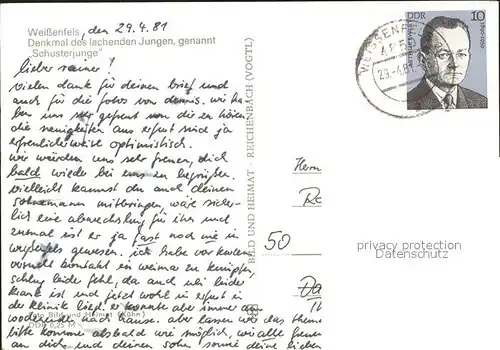 Weißenfels, den 29.4.81
Denkmal des lachenden Jungen, genannt
„Schusterjunge"
lieber rainer!
vielen dank für deinen brief und
auch für die fotos von dennis. wir ha
ben uns sehr gefreut von dir zu hören
die neuigkeiten aus erfurt sind ja
erfreulicherweise optimistisch.
wir würden uns sehr freuen, dich
bald wieder bei uns zu begrüßen.
vielleicht kannst du auch deinen
sohnemann mitbringen, wäre sicher-
lich eine abwechslung für ihn und
zumal ist er ja fast noch nie in
weißenfels gewesen. ich habe vor kurzem
versucht kontakt in weimar zu knüpfen,
schlug leider fehl, da auch
krank ist und jetzt wohl in erfurt in
der klinik liegt. er konnte aber immer am
wochenende nach hause. aber lassen wir das thema
bitte komme alsbald wie möglich, wir alle freuen
an dich und deinen sohn sowie deine lieben
Foto Bild und Heimat (Kühn)
DDR 0,25 M
BILD UND HEIMAT · REICHENBACH (VOGTL)
WEISSENFELS
29.-4.81
DDR
10
Herrn
50
privacy protection
Datenschutz